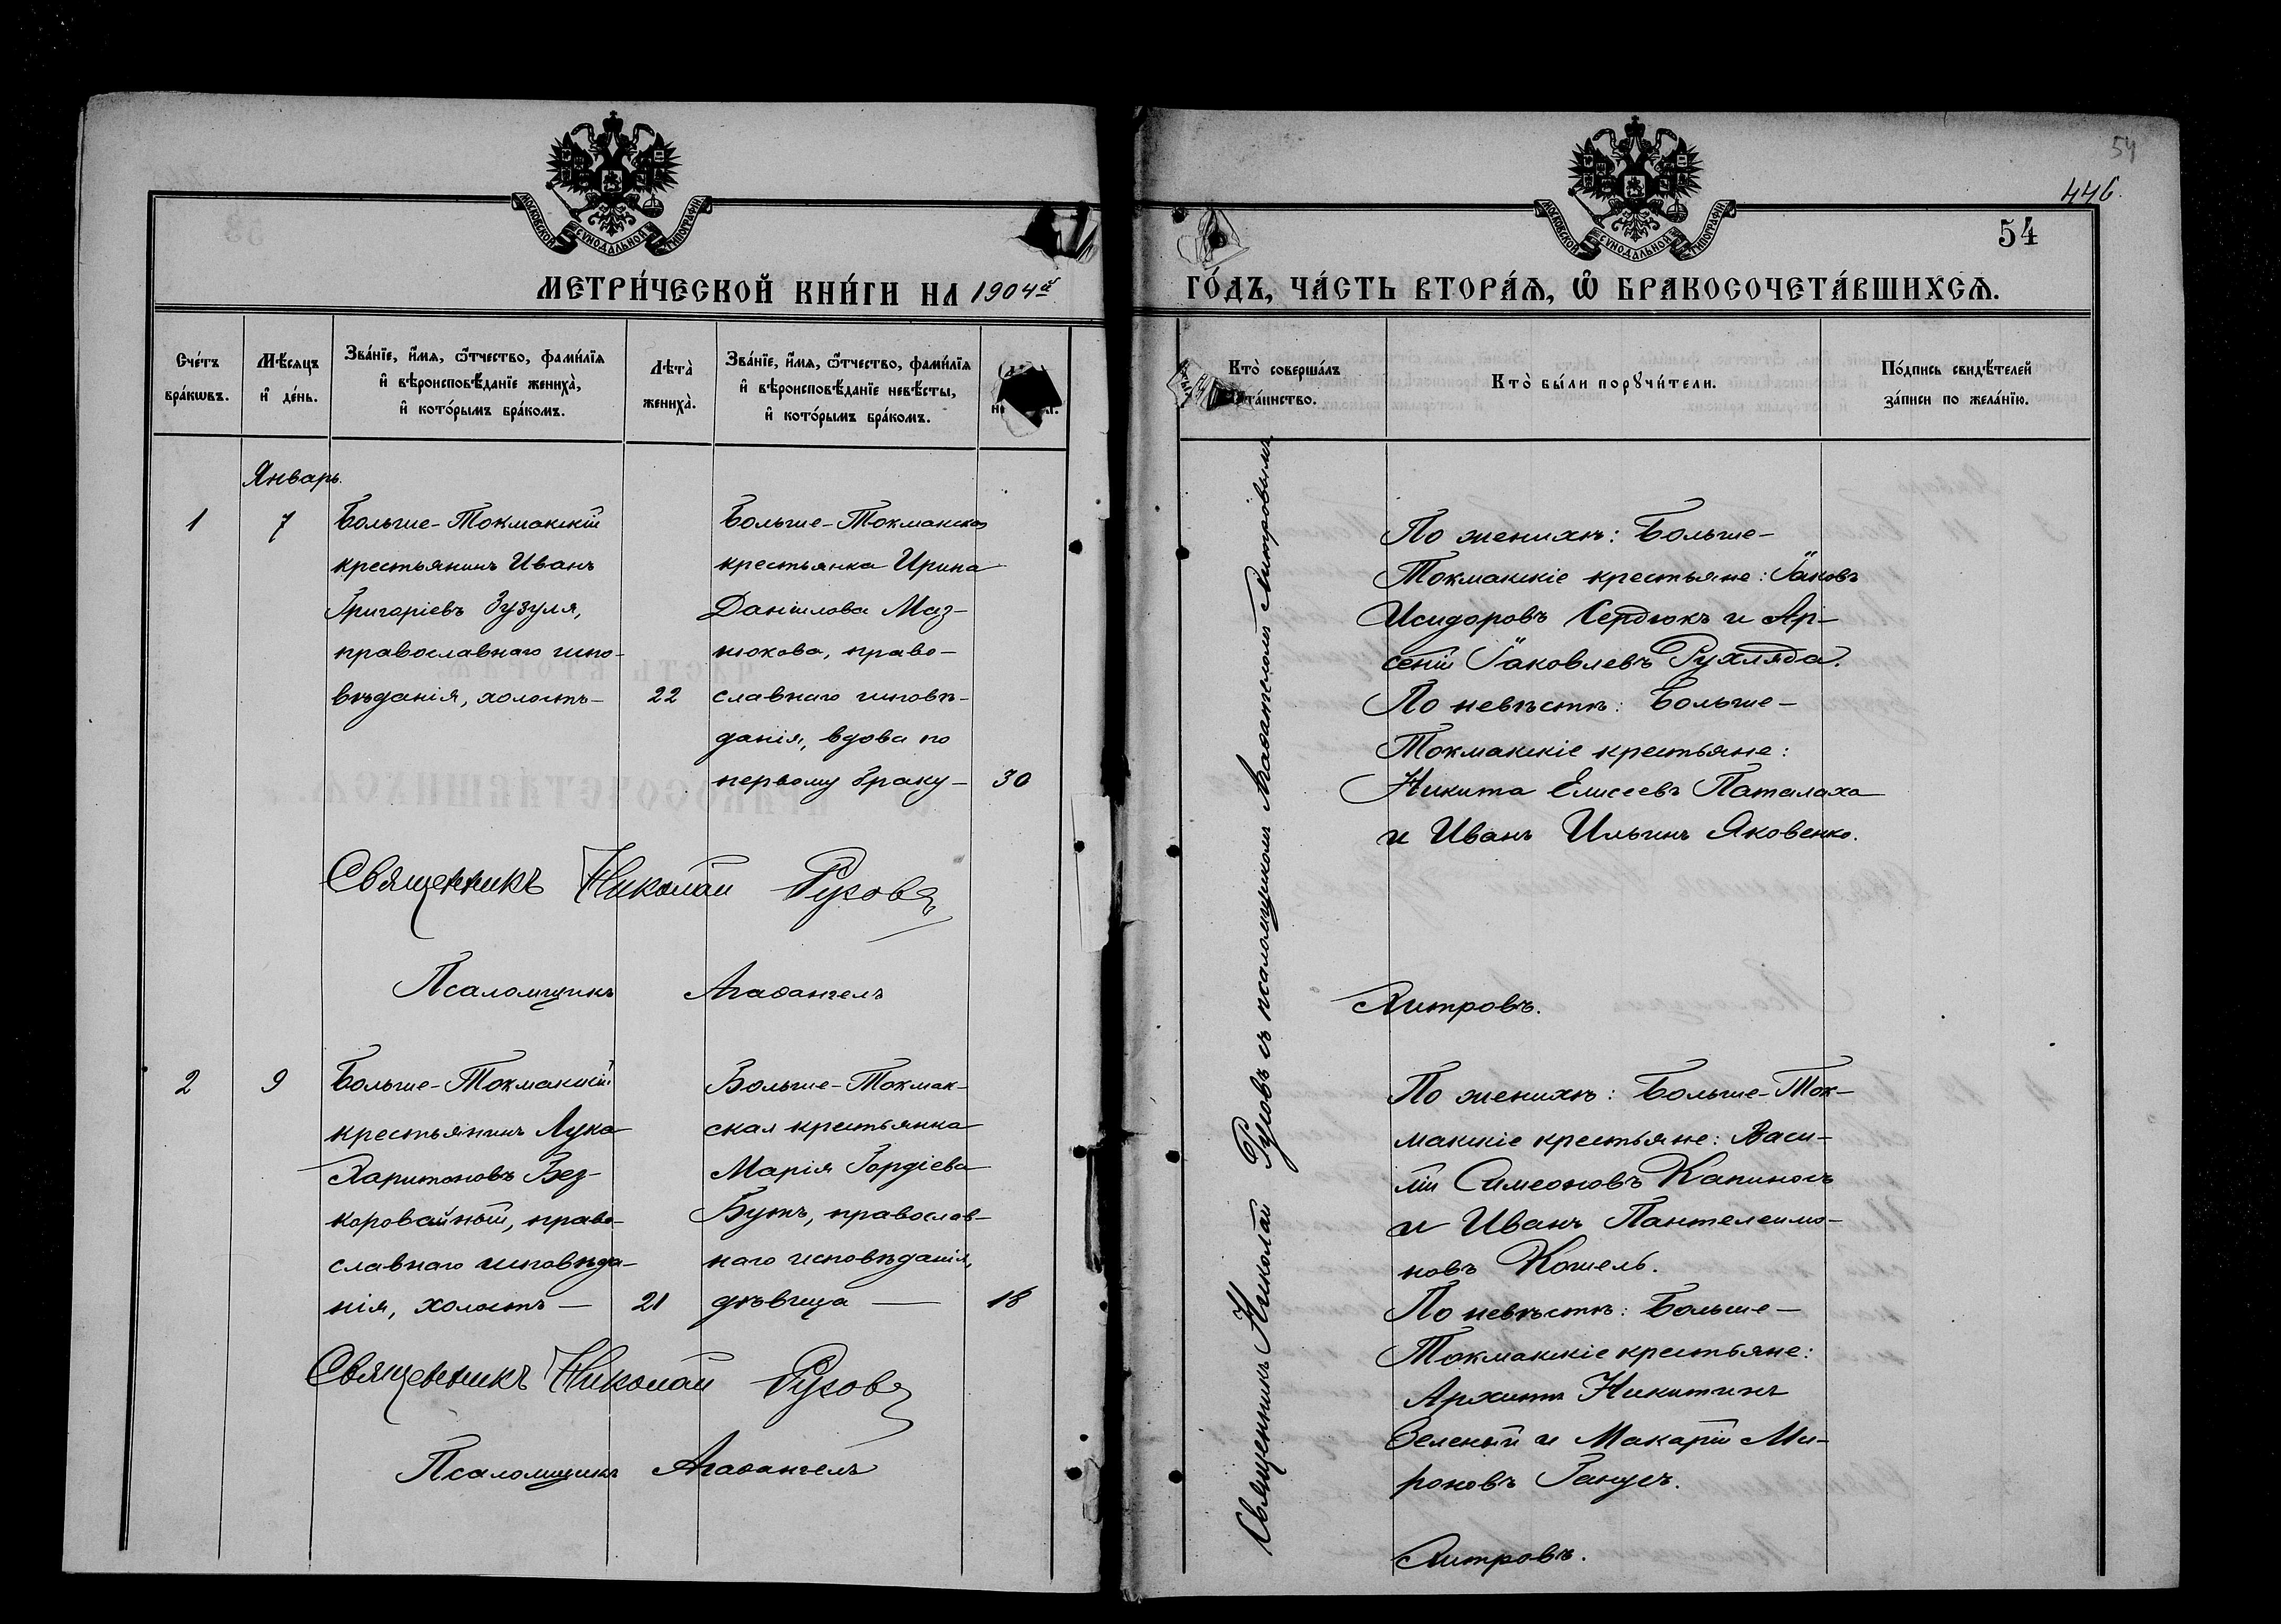 54
446.
МОСКОВСКОЙ СѴНОДАЛЬНОЙ ТИПОГРАФІИ
МОСКОВСКОЙ СѴНОДАЛЬНОЙ ТИПОГРАФІИ
54
МЕТРИ́ЧЕСКОЙ КНИ́ГИ НА 1904й
ГО́ДЪ, ЧА́СТЬ ВТОРА́Ѧ, Ѽ БРАКОСОЧЕТА́ВШИХСѦ.
Сче́тъ бра́кѡвъ.
Мѣ́сяцъ и҆ де́нь.
Зва́нїе, и҆́мя, ѻ҆́тчество, фами́лїя и҆ вѣроисповѣ́данїе жениха̀, и҆ кото́рымъ бра́комъ.
Лѣта̀ жениха̀.
Зва́нїе, и҆́мя, ѻ҆́тчество, фами́лїя и҆ вѣроисповѣ́данїе невѣ́сты, и҆ кото́рымъ бра́комъ.
Кто̀ соверша́лъ та́инство.
Кто̀ бы́ли порꙋчи́тели.
По́дпись свидѣ́телей за́писи по жела́нїю.
Январь.
1
7
Больше-Токмакскій
крестьянинъ Иванъ
Григоріевъ Зузуля,
православнаго испо-
вѣданія, холостъ-
22
Больше-Токмакская
крестьянка Ирина
Даніилова Маз-
нюкова, право-
славнаго исповѣ-
данія, вдова по
первому браку-
30
Священникъ Николай Русовъ съ псаломщикомъ Агаѳангеломъ Хитровымъ.
По женихѣ: Больше-
Токмакскіе крестьяне: Іаковъ
Исидоровъ Сердюкъ и Ар-
сеній Іаковлевъ Рухляда.
По невѣстѣ: Больше-
Токмакскіе крестьяне:
Никита Елисеевъ Паталаха
и Иванъ Ильинъ Яковенко.
Священникъ Николай Русовъ
Псаломщикъ Агаѳангелъ Хитровъ.
2
9
Больше-Токмакскій
крестьянинъ Лука
Харитоновъ Без-
коровайный, право-
славнаго исповѣда-
нія, холостъ —
21
Больше-Токмак-
ская крестьянка
Марія Гордіева
Бутъ, православ-
наго исповѣданія,
дѣвица —
18
По женихѣ: Больше-Ток-
макскіе крестьяне: Васи-
лій Симеоновъ Капиносъ
и Иванъ Пантелеимо-
новъ Кошель.
По невѣстѣ: Больше-
Токмакскіе крестьяне:
Архипъ Никитинъ
Зеленый и Макарій Ми-
роновъ Ганусъ.
Священникъ Николай Русовъ
Псаломщикъ Агаѳангелъ
Хитровъ.